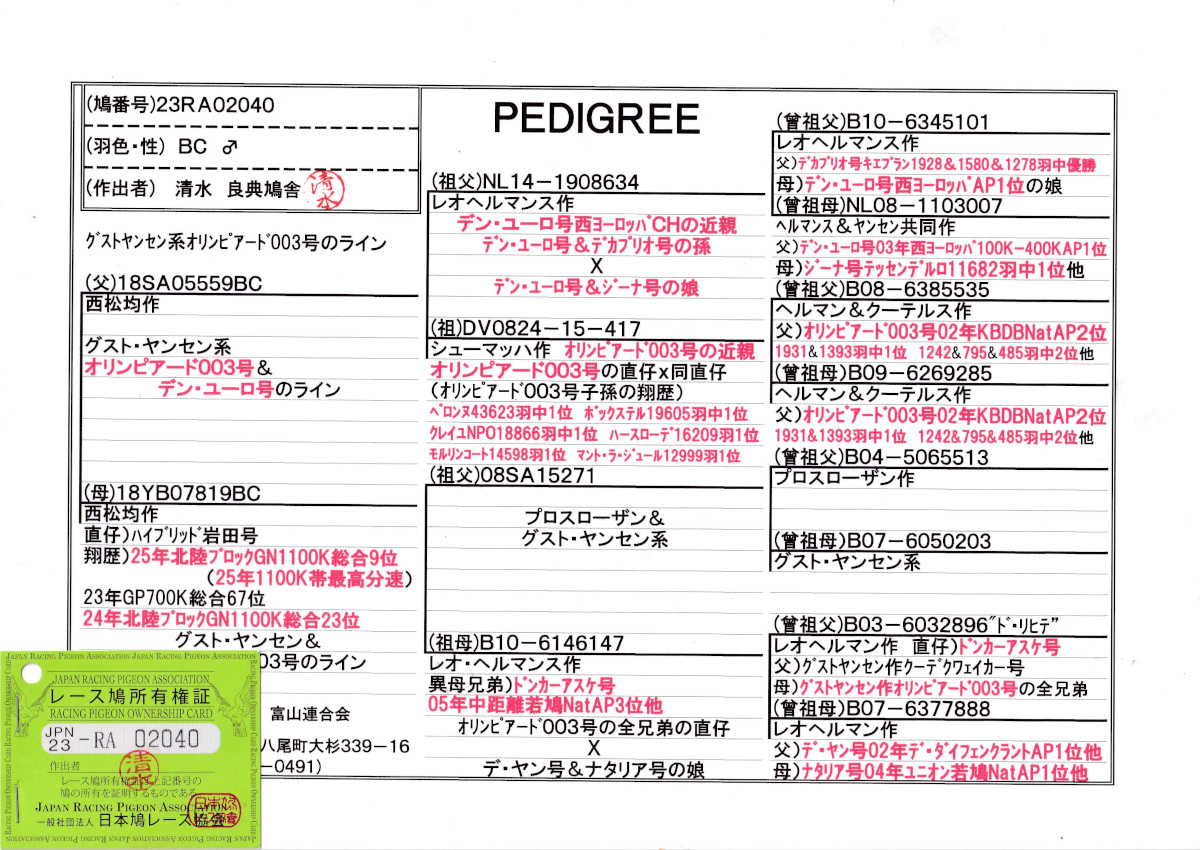 (鳩番号)23RA02040
(羽色・性) BC ♂
(作出者) 清水 良典鳩舎
清水
グストヤンセン系オリンピアード003号のライン
(父)18SA05559BC
西松均作
グスト・ヤンセン系
オリンピアード003号&
デン・ユーロ号のライン
(母)18YB07819BC
西松均作
直仔)ハイブリッド岩田号
翔歴)25年北陸ブロックGN1100K総合9位
(25年1100K帯最高分速)
23年GP700K総合67位
24年北陸ブロックGN1100K総合23位
グスト・ヤンセン&
03号のライン
富山連合会
八尾町大杉339-16
-0491)
PEDIGREE
(祖父)NL14-1908634
レオヘルマンス作
デン・ユーロ号西ヨーロッパCHの近親
デン・ユーロ号&デカプリオ号の孫
X
デン・ユーロ号&ジーナ号の娘
(祖)DV0824-15-417
シューマッハ作 オリンピアード003号の近親
オリンピアード003号の直仔x同直仔
(オリンピアード003号子孫の翔歴)
ペロンヌ43623羽中1位 ボックステル19605羽中1位
クレイユNPO18866羽中1位 ハースローデ16209羽1位
モルリンコート14598羽1位 マント・ラ・ジュール12999羽1位
(祖父)08SA15271
プロスローザン&
グスト・ヤンセン系
(祖母)B10-6146147
レオ・ヘルマンス作
異母兄弟)ドンカーアスケ号
05年中距離若鳩NatAP3位他
オリンピアード003号の全兄弟の直仔
X
デ・ヤン号&ナタリア号の娘
(曾祖父)B10-6345101
レオヘルマンス作
父)デカプリオ号キエブラン1928&1580&1278羽中優勝
母)デン・ユーロ号西ヨーロッパAP1位の娘
(曾祖母)NL08-1103007
ヘルマンス&ヤンセン共同作
父)デン・ユーロ号03年西ヨーロッパ100K-400KAP1位
母)ジーナ号テッセンデルロ11682羽中1位他
(曾祖父)B08-6385535
ヘルマン&クーテルス作
父)オリンピアード003号02年KBDBNatAP2位
1931&1393羽中1位 1242&795&485羽中2位他
(曾祖母)B09-6269285
ヘルマン&クーテルス作
父)オリンピアード003号02年KBDBNatAP2位
1931&1393羽中1位 1242&795&485羽中2位他
(曾祖父)B04-5065513
プロスローザン作
(曾祖母)B07-6050203
グスト・ヤンセン系
(曾祖父)B03-6032896"ド・リヒテ"
レオヘルマン作 直仔)ドンカーアスケ号
父)グストヤンセン作クーデクウェイカー号
母)グストヤンセン作オリンピアード003号の全兄弟
(曾祖母)B07-6377888
レオヘルマン作
父)デ・ヤン号02年デ・ダイフェンクラントAP1位他
母)ナタリア号04年ユニオン若鳩NatAP1位他
JAPAN RACING PIGEON ASSOCIATION JAPAN RACING PIGEON ASSOCIATION
JAPAN RACING PIGEON ASSOCIATION
レース鳩所有権証
RACING PIGEON OWNERSHIP CARD
JPN
23 -RA 02040
作出者
清水
レース鳩所有権 上記番号の
鳩の所有を証明するものである
JAPAN RACING PIGEON ASSOCIATION
一般社団法人 日本鳩レース協会